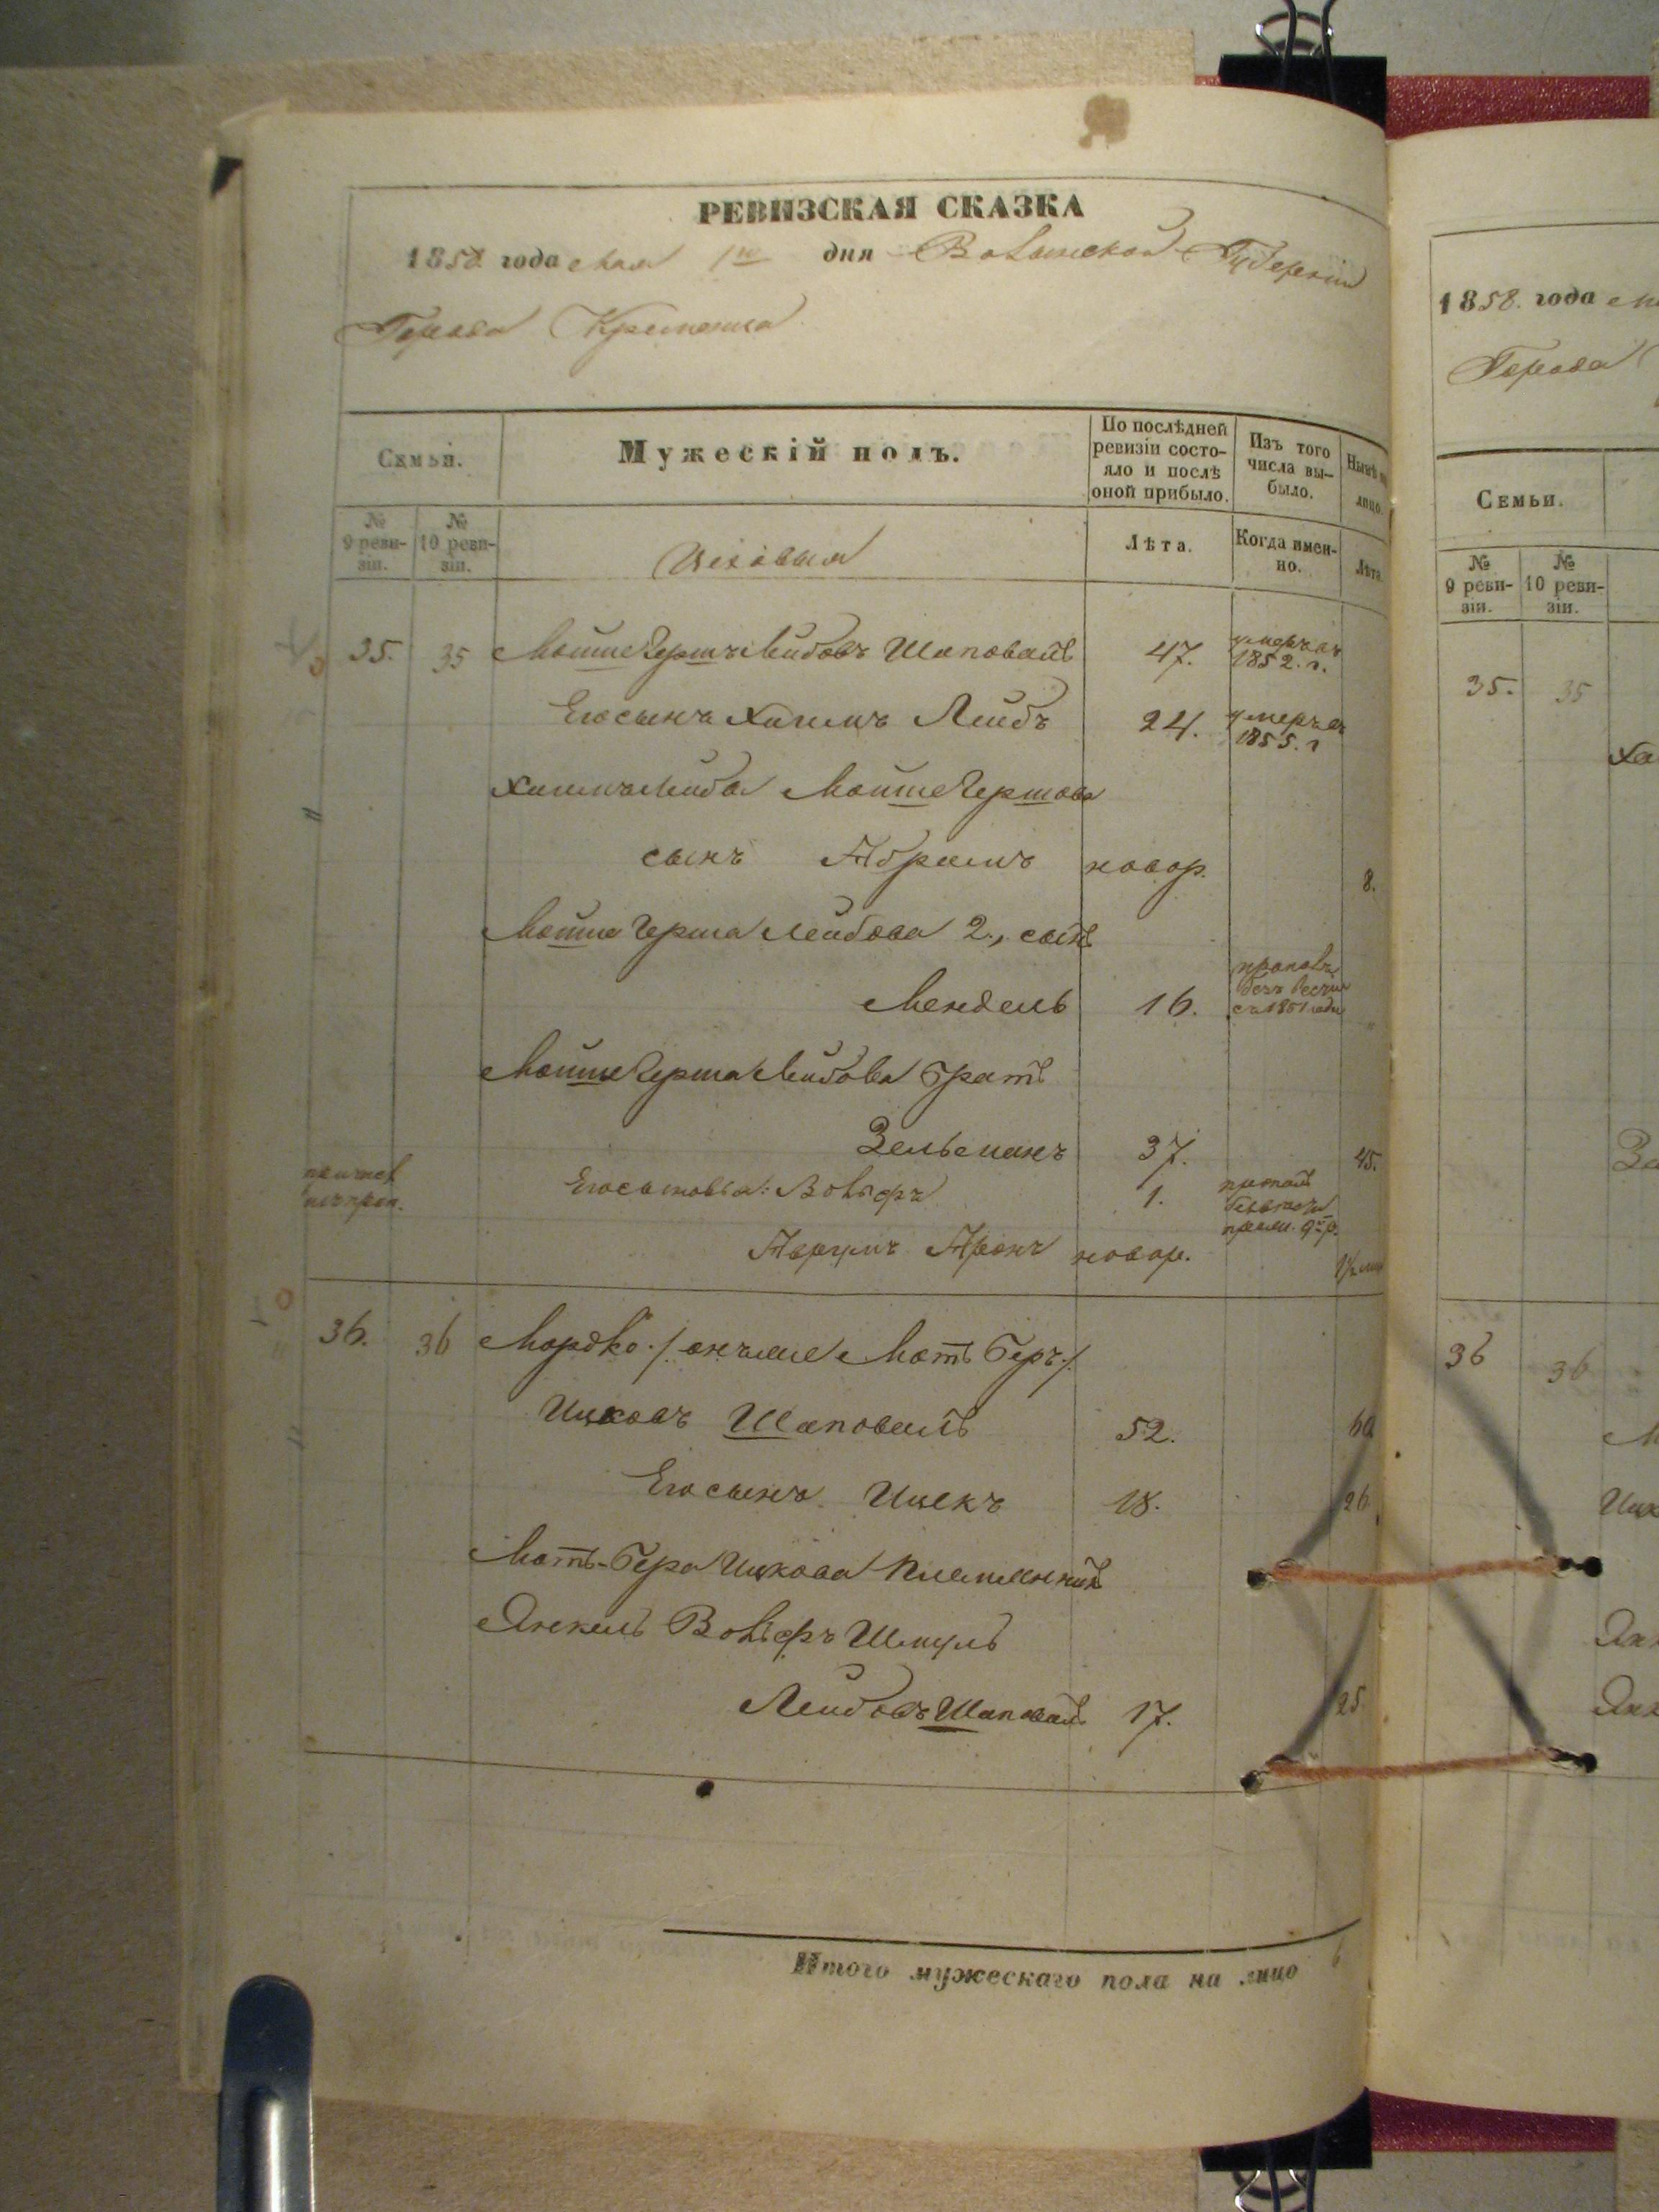 РЕВИЗСКАЯ СКАЗКА
1858 года мая 1го дня Волынской Губернии
Города Кременца
Семьи.
Мужескій полъ.
По послѣдней ревизіи состо-
яло и послѣ оной прибыло.
Изъ того числа вы-
было.
Нынѣ на лицо.
№ 9 реви-
зіи.
№ 10 реви-
зіи.
Цеховыя
Лѣта.
Когда имен-
но.
Лѣта.
35. 35 Мошко Гершъ Лейбовъ Шаповалъ 47. умеръ въ 1852. г.
Его сынъ Хаимъ Лейбъ 24. умеръ въ 1855. г
Хаимъ Лейба Мошко Гершова
сынъ Абрамъ новор. 8.
Мошко Герша Лейбова 2., сынъ
Мендель 16. пропалъ безъ вести съ 1851 года
Мошко Герша Лейбова братъ
Зельманъ 37. 45.
Его сыновья: Вольфъ 1. пропалъ
Аврумъ Аронъ новор.
36. 36 Мордко /: онъ же Мотьберъ :/
Ицковъ Шаповалъ 52. 60
Его сынъ Ицекъ 18. 26
Моть-Бера Ицкова племянникъ
Янкель Вольфъ Шмуль
Лейбовъ Шаповалъ 17. 25
Итого мужескаго пола на лицо 6
1858. года
Города
Семьи.
№ 9 реви-
зіи.
№ 10 реви-
зіи.
35. 35
Ха
36 36